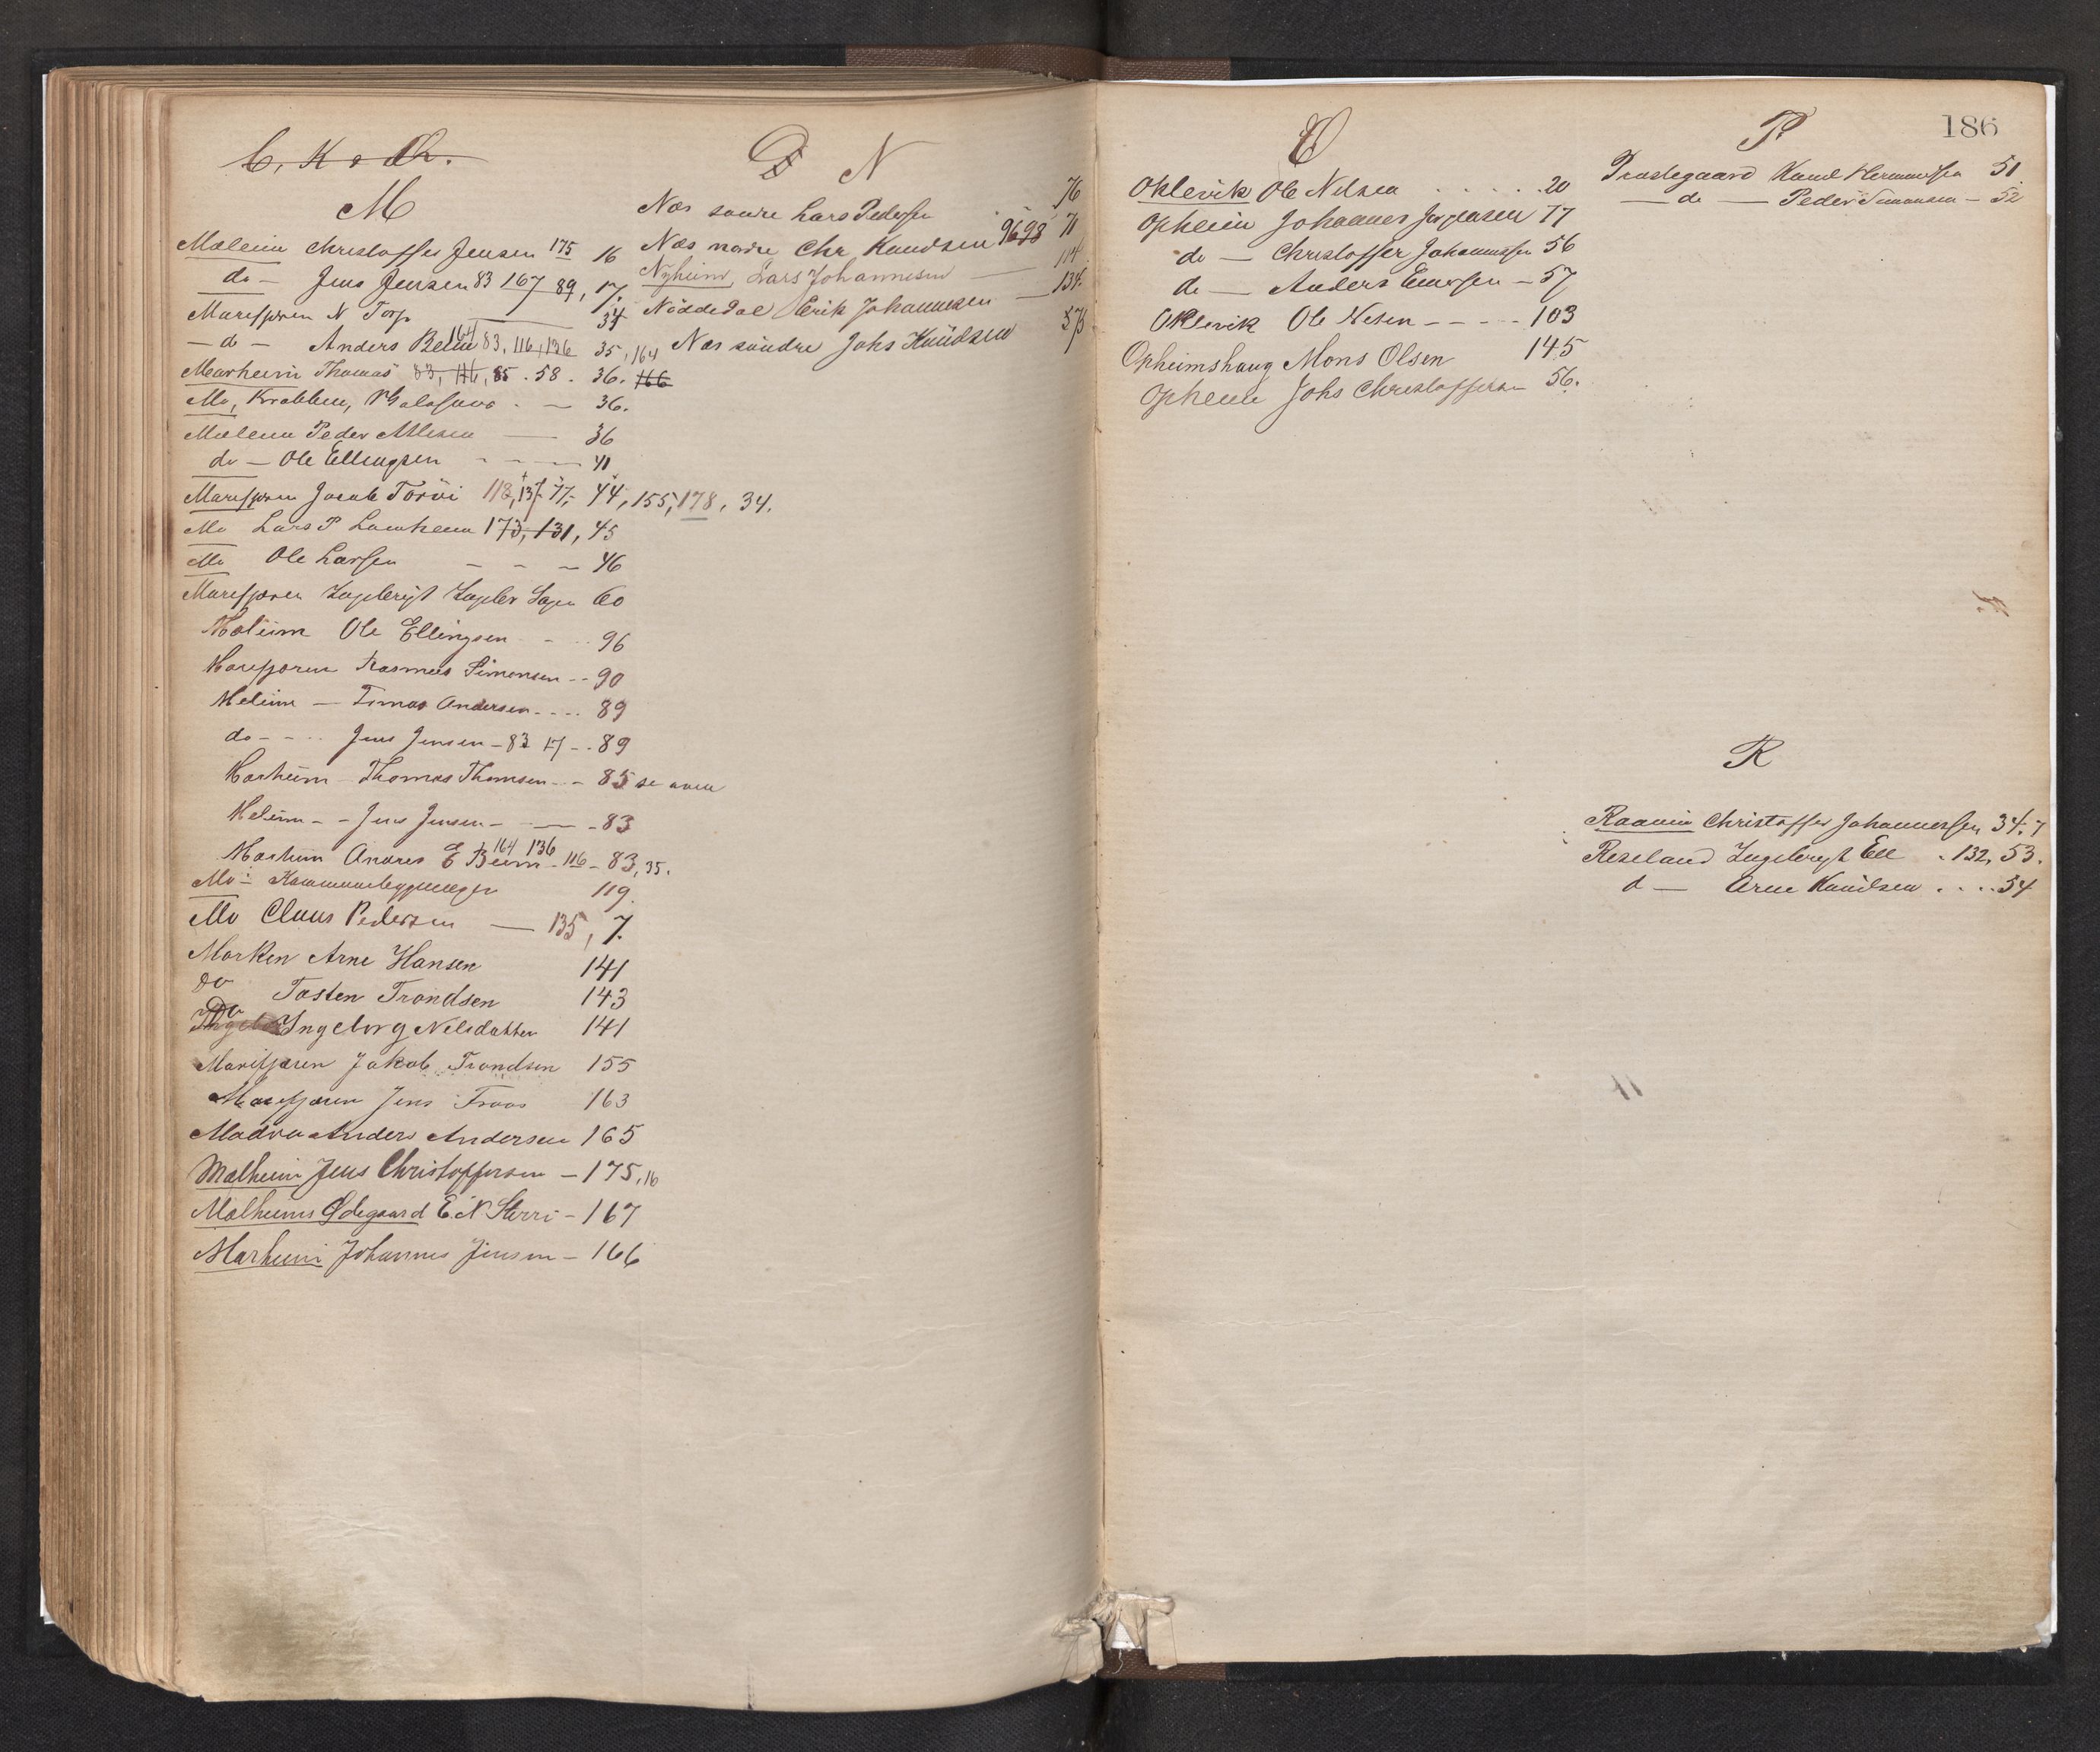 C, K & Ch.
M
Mæleim Christoffer Jensen 175 16
do - Jens Jensen 83 167 89, 17.
Marifjæren N Torp 34
- do - Anders Beim 164 83, 116, 136 35, 164
Marheim Thomas 83, 116, 85. 58. 36. 166
Mo, Krabben, 36.
Mæleim Peder Atlesen 36
do - Ole Ellingsen 41
Marifjæren Jacob Torvi 113, 137, 77, 44, 155, 178, 34.
Mo Lars P 173, 131, 45
Mo Ole Larsen 46
Marifjæren Ingebrigt 60
Mæleim Ole Ellingsen 96
Marifjæren Rasmus Simonsen 90
Meleim - Tomas Andersen 89
do - Jens Jensen - 83 17 - 89
Marheim Thomas Thomsen - 85 se oven
Meleim - Jens Jensen - 83
Marheim Anders E Beim 164 136 116 - 83, 35.
Mo - 119.
Mo Claus Pedersen - 135, 7.
Morken Arne Hansen 141
Do Tosten Trondsen 143
Do Ingeborg Nelsdatter 141
Marifjæren Jakob Trondsen 155
Marifjæren Jens 163
Anders Andersen 165
Mælheim Jens Christoffersen - 175, 16
Mælheims Ødegaard E. N Sterri - 167
Marheim Johannes Jensen - 166
D N
Næs søndre Lars Pedersen 76
Næs nordre Chr Knudsen 96 98 71
Nyheim, Lars Johannesen - 114
Nöddedal Erik Johannesen - 134.
Næs søndre Johs Knudsen 575
O
Oklevik Ole Nelsen 20
Opheim Johannes 77
do - Christoffer Johannessen 56
do - Anders - 57
Oklevik Ole Nesen - - - - 103
Opheimshaug Mons Olsen 145
Opheim Johs Christoffersen 56.
P
186
Prestegaard Knud Hermundsen 51.
- do - Peder Simonsen - 52
R
Raaum Christoffer Johannessen 34. 7
Reseland Ingebrigt Ell . 132, 53.
d - Arne Knudsen . . . . 54